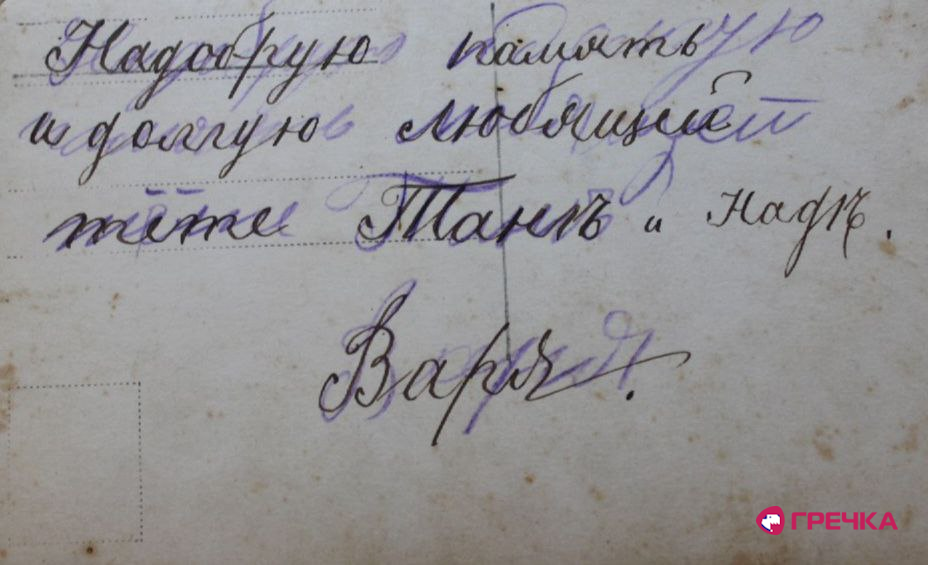 Надобрую память
и долгую любящий
тёте Танѣ и Надѣ.
Варя.
ГРЕЧКА